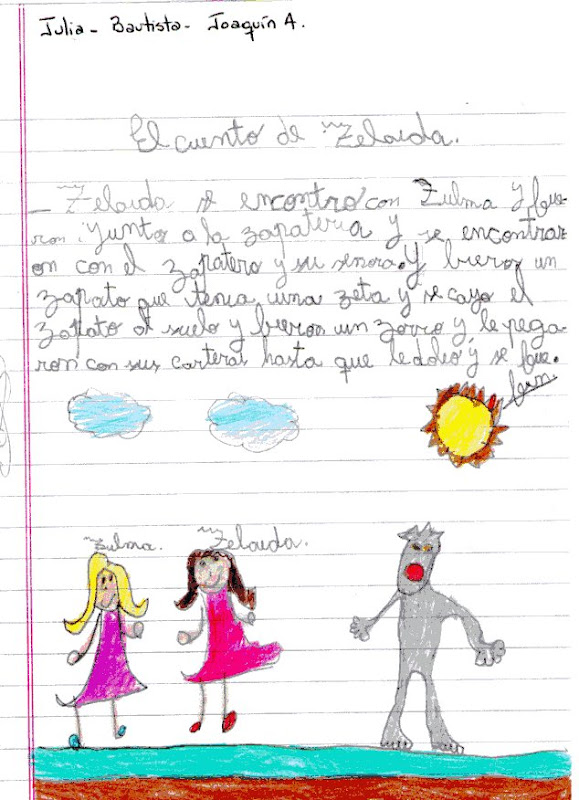 Julia - Bautista - Joaquín A.
El cuento de Zelaida.
- Zelaida se encontro con Zulma y fue-
ron juntos a la zapateria y se encontrar
on con el zapatero y su señora. y bieron un
zapato que tenia una zeta y se cayo el
zapato al suelo y bieron un zorro y le pega
ron con sus carteras hasta que le dolio y se fue.
Zulma. Zelaida.